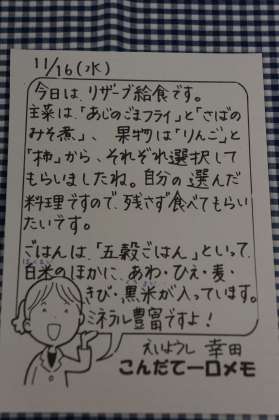 11/16(水)
今日は、リザーブ給食です。
主菜は、「あじのごまフライ」と「さばの
みそ煮」、果物は「りんご」と
「柿」から、それぞれ選択して
もらいましたね。自分の選んだ
料理ですので、残さず食べてもらい
たいです。
ごはんは、「五穀ごはん」といって、
白米のほかに、あわ・ひえ・麦・
きび・黒米が入っています。
ミネラル豊富ですよ!
えいようし 幸田
こんだて一口メモ